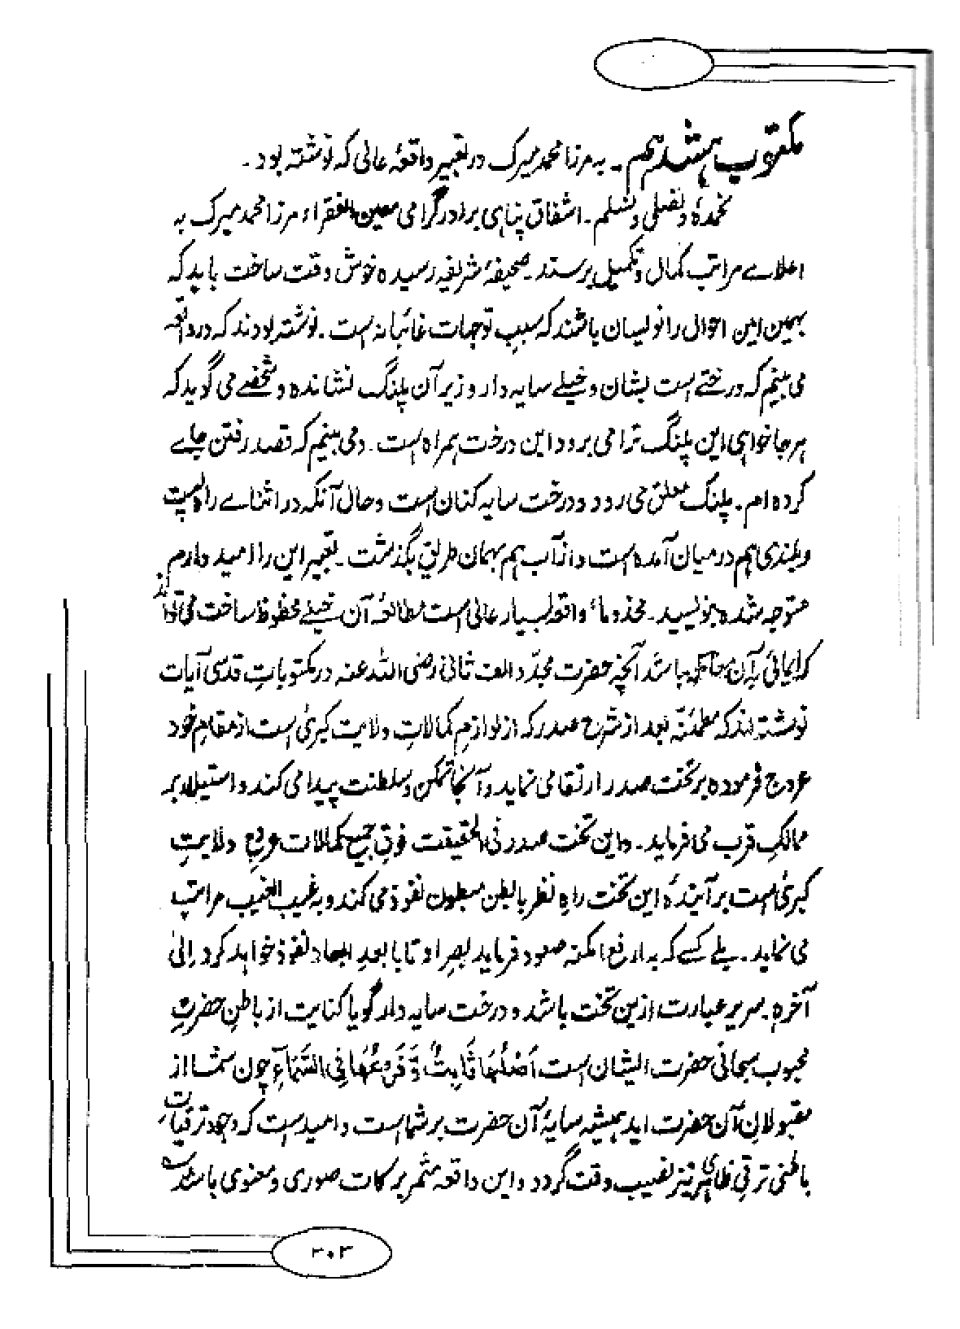 مکتوب ہشتدہم ۔ بہ مرزا محمد میرک در تعبیر واقعۂ عالی کہ نوشتہ بود ۔
نحمدہٗ ونصلی ونسلم ۔ اشفاق پناہی برادر گرامی معین الفقراء مرزا محمد میرک بہ
اعلاے مراتب کمال و تکمیل برسند ۔ صحیفۂ شریفہ رسیدہ خوش وقت ساخت باید کہ
بہمین آئین احوال را نویسان باشند کہ سبب توجہات غائبانہ است ۔ نوشتہ بودند کہ در واقعہ
می بینم کہ درختے است بشان و خیلے سایہ دار و زیر آن پلنگ نشاندہ و شخصے می گوید کہ
ہر جا خواہی این پلنگ ترا می برد و این درخت ہمراہ است ۔ و می بینم کہ قصد رفتن جاے
کردہ ام ۔ پلنگ معلق می رود و درخت سایہ کنان است و حال آنکہ در اثناے راہ پست
و بلندی ہم درمیان آمدہ است و از آب ہم بہمان طریق بگذشت ۔ تعبیر این را امیدوارم
متوجہ شدہ بنویسید ۔ مخدوما واقعہ بسیار عالی است مطالعۂ آن خیلے محظوظ ساخت می تواند
کہ ایمائی بہ آن باشد آنچہ حضرت مجدّد الف ثانی رضی اللہ عنہ در مکتوبات قدسی آیات
نوشتہ اند کہ مطمئنّہ بعد از شرح صدر کہ از لوازم کمالاتِ ولایت کبریٰ است از مقام خود
عروج فرمودہ بر تخت صدر ارتقا می نماید و آنجا تمکن و سلطنت پیدا می کند و استیلا بر
ممالک قرب می فرماید ۔ و این تخت صدر فی الحقیقت فوق جمیع کمالات عروج ولایتِ
کبریٰ است بر آیندۂ این تخت را نظر بابطن بطون نفوذ می کند و بہ غیب الغیب سرایت
می نماید ۔ بلے کسے کہ بہ ارفع امکنہ صعود فرماید بصر او تا بابعد ابعاد نفوذ خواہد کرد الیٰ
آخرہ سریر عبارت ازین تخت باشد و درخت سایہ دار گویا کنایت از باطن حضرتِ
محبوب سبحانی حضرت ایشان است اَصْلُهَا ثَابِتٌ وَّفَرْعُهَا فِی السَّمَآءِ چون شما از
مقبولانِ آن حضرت اید ہمیشہ سایۂ آن حضرت بر شماست و امید است کہ وجود ترقیات
باطنی ترقی ظاہری نیز نصیب وقت گردد و این واقعہ مثمر برکات صوری و معنوی باشد
۳۰۳